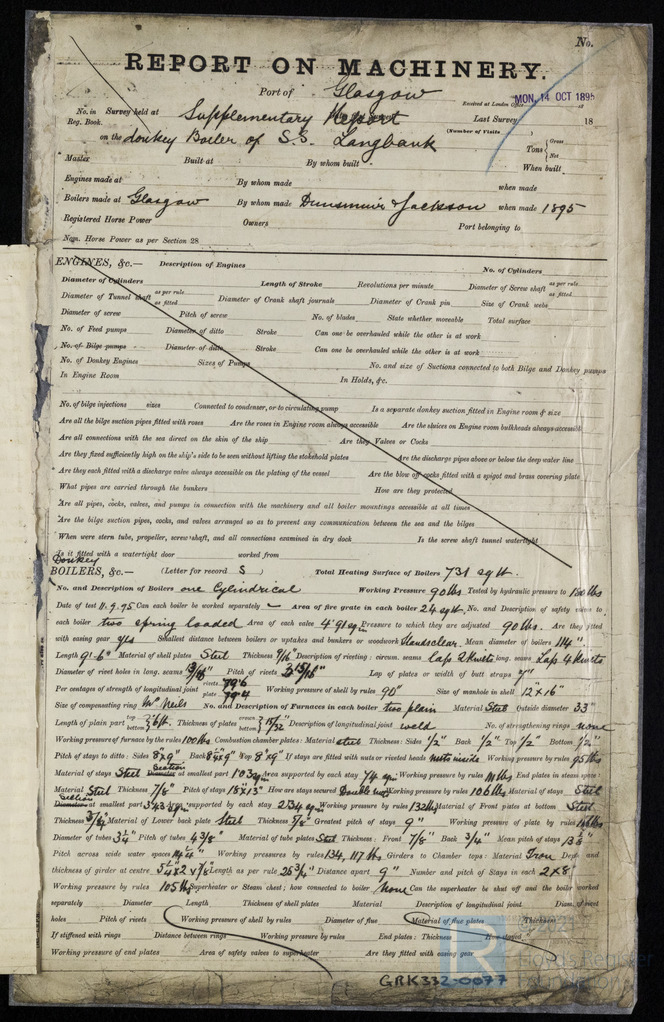 No.
REPORT ON MACHINERY.
Port of Glasgow
Received at London Office MON. 14 OCT 1895
No. in Reg. Book. Survey held at Supplementary Report Last Survey 18
(Number of Visits )
on the donkey Boiler of S.S. Langbank Tons { Gross Net
Master Built at By whom built When built
Engines made at By whom made when made
Boilers made at Glasgow By whom made Dunsmuir & Jackson when made 1895
Registered Horse Power Owners Port belonging to
Nom. Horse Power as per Section 28
ENGINES, &c.— Description of Engines No. of Cylinders
Diameter of Cylinders Length of Stroke Revolutions per minute Diameter of Screw shaft as per rule as fitted
Diameter of Tunnel shaft as per rule as fitted Diameter of Crank shaft journals Diameter of Crank pin Size of Crank webs
Diameter of screw Pitch of screw No. of blades State whether moveable Total surface
No. of Feed pumps Diameter of ditto Stroke Can one be overhauled while the other is at work
No. of Bilge pumps Diameter of ditto Stroke Can one be overhauled while the other is at work
No. of Donkey Engines Sizes of Pumps No. and size of Suctions connected to both Bilge and Donkey pumps
In Engine Room In Holds, &c.
No. of bilge injections sizes Connected to condenser, or to circulating pump Is a separate donkey suction fitted in Engine room & size
Are all the bilge suction pipes fitted with roses Are the roses in Engine room always accessible Are the sluices on Engine room bulkheads always accessible
Are all connections with the sea direct on the skin of the ship Are they Valves or Cocks
Are they fixed sufficiently high on the ship's side to be seen without lifting the stokehold plates Are the discharge pipes above or below the deep water line
Are they each fitted with a discharge valve always accessible on the plating of the vessel Are the blow off cocks fitted with a spigot and brass covering plate
What pipes are carried through the bunkers How are they protected
Are all pipes, cocks, valves, and pumps in connection with the machinery and all boiler mountings accessible at all times
Are the bilge suction pipes, cocks, and valves arranged so as to prevent any communication between the sea and the bilges
When were stern tube, propeller, screw shaft, and all connections examined in dry dock Is the screw shaft tunnel watertight
Is it fitted with a watertight door worked from
Donkey
BOILERS, &c.— (Letter for record S ) Total Heating Surface of Boilers 731 sq ft.
No. and Description of Boilers one Cylindrical Working Pressure 90 lbs Tested by hydraulic pressure to 180 lbs
Date of test 11.9.95 Can each boiler be worked separately — Area of fire grate in each boiler 24 sq ft. No. and Description of safety valves to
each boiler two spring loaded Area of each valve 4.91 sq in Pressure to which they are adjusted 90 lbs. Are they fitted
with easing gear yes Smallest distance between boilers or uptakes and bunkers or woodwork Stands clear. Mean diameter of boilers 114"
Length 9'.6" Material of shell plates Steel Thickness 9/16" Description of riveting: circum. seams Laps 2 Rivets long. seams Laps 4 Rivets
Diameter of rivet holes in long. seams 13/16" Pitch of rivets 3 15/16" Lap of plates or width of butt straps 7"
Per centages of strength of longitudinal joint rivets 79.6 plate 79.4 Working pressure of shell by rules 90" Size of manhole in shell 12" x 16"
Size of compensating ring McNeils No. and Description of Furnaces in each boiler two plain Material Steel Outside diameter 33"
Length of plain part top bottom } 6 ft. Thickness of plates crown bottom } 15/32" Description of longitudinal joint weld No. of strengthening rings none
Working pressure of furnace by the rules 100 lbs Combustion chamber plates: Material steel Thickness: Sides 1/2" Back 1/2" Top 1/2" Bottom 1/2"
Pitch of stays to ditto: Sides 8"x9" Back Top 8"x9" If stays are fitted with nuts or riveted heads nuts inside Working pressure by rules 95 lbs
Material of stays Steel Section Diameter at smallest part Area supported by each stay 74 sq in Working pressure by rules End plates in steam space:
Material Steel Thickness 7/8" Pitch of stays 18"x13" How are stays secured Double nuts Working pressure by rules 106 lbs Material of stays Steel
Section Diameter at smallest part Area supported by each stay 234 sq in Working pressure by rules 132 lbs Material of Front plates at bottom Steel
Thickness 3/4" Material of Lower back plate Steel Thickness 5/8" Greatest pitch of stays 9" Working pressure of plate by rules
Diameter of tubes 3 1/4" Pitch of tubes 4 3/8" Material of tube plates Steel Thickness: Front 7/8" Back 3/4" Mean pitch of stays
Pitch across wide water spaces 14 1/4" Working pressures by rules 134, 117 lbs Girders to Chamber tops: Material Iron Depth and
thickness of girder at centre 5 1/4 x 2 x 7/8" Length as per rule 26 3/4" Distance apart 9" Number and pitch of Stays in each 2 x 8"
Working pressure by rules 105 lbs Superheater or Steam chest; how connected to boiler None Can the superheater be shut off and the boiler worked
separately Diameter Length Thickness of shell plates Material Description of longitudinal joint Diam. of rivet
holes Pitch of rivets Working pressure of shell by rules Diameter of flue Material of flue plates Thickness
If stiffened with rings Distance between rings Working pressure by rules End plates: Thickness How stayed
Working pressure of end plates Area of safety valves to superheater Are they fitted with easing gear
GRK332-0077